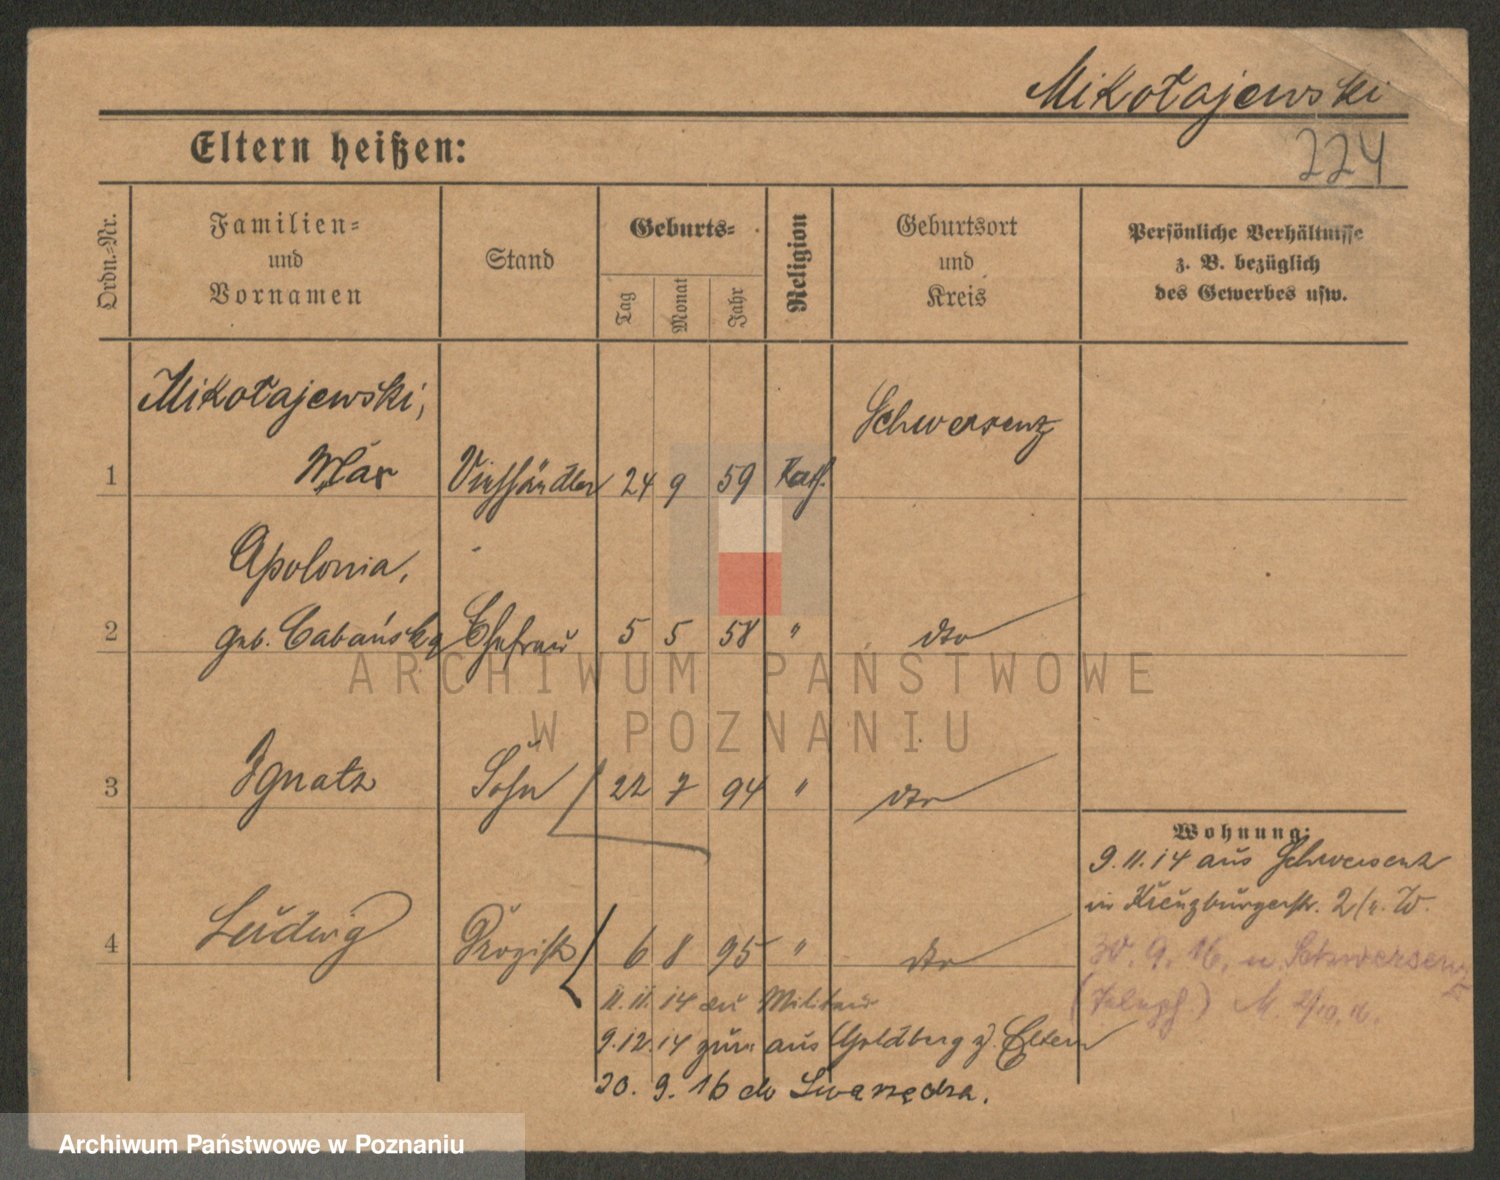 Mikołajewski
224
Eltern heißen:
Ordn.=Nr.
Familien=
und
Vornamen
Stand
Geburts=
Tag
Monat
Jahr
Religion
Geburtsort
und
Kreis
Persönliche Verhältnisse
z. B. bezüglich
des Gewerbes usw.
Mikołajewski,
1 Max Viehhändler 24 9 59 Kath. Schwersenz
Apolonia,
2 geb. Cabańska Ehefrau 5 5 58 " dto
3 Ignatz Sohn 22 7 94 " dto
4 Ludwig Drogist 6 8 95 " dto
11.11.14 zu Militär
9.12.14 zur. aus Goldberg z. Eltern
20. 9. 16 do Swarzędza.
Wohnung:
9.11.14 aus Schwersenz
in Kreuzburgerstr. 2 W.
30. 9. 16. n. Schwersenz
ARCHIWUM PAŃSTWOWE
W POZNANIU
Archiwum Państwowe w Poznaniu